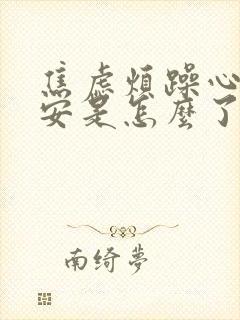 焦虑煩躁心
安是怎麼了
南绮夢